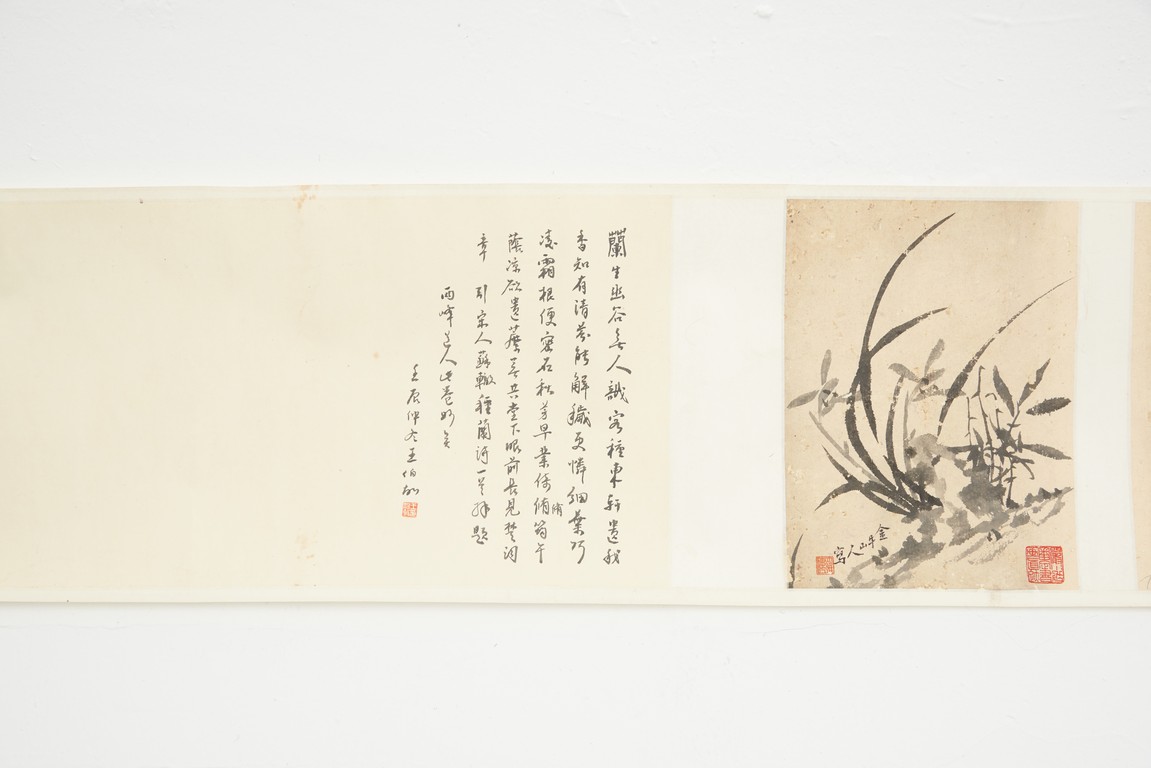 金牛山人寫
蘭生幽谷無人識客種東軒遺我
香知有清芬能解穢更憐細葉巧
凌霜根便密石秋芳早叢倚脩筠午
脩
蔭涼欲遣蘼蕪共堂下眼前長見楚詞
章 引宋人蘇轍種蘭詩一首 題
兩峰道人此卷
壬辰仲冬王伯敏